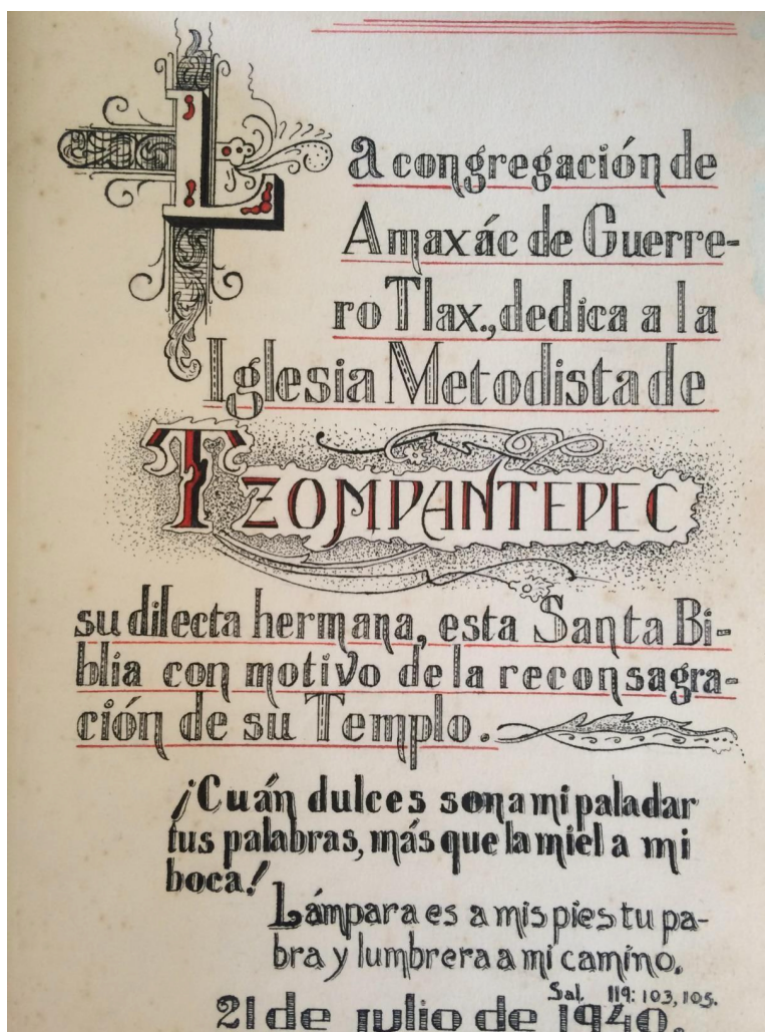 La congregación de
Amaxác de Guerre-
ro Tlax., dedica a la
Iglesia Metodista de
TZOMPANTEPEC
su dilecta hermana, esta Santa Bi-
blia con motivo de la reconsagra-
ción de su Templo.
¡Cuán dulces son a mi paladar
tus palabras, más que la miel a mi
boca!
Lámpara es a mis pies tu pa-
bra y lumbrera a mi camino.
Sal. 119: 103, 105.
21 de julio de 1940